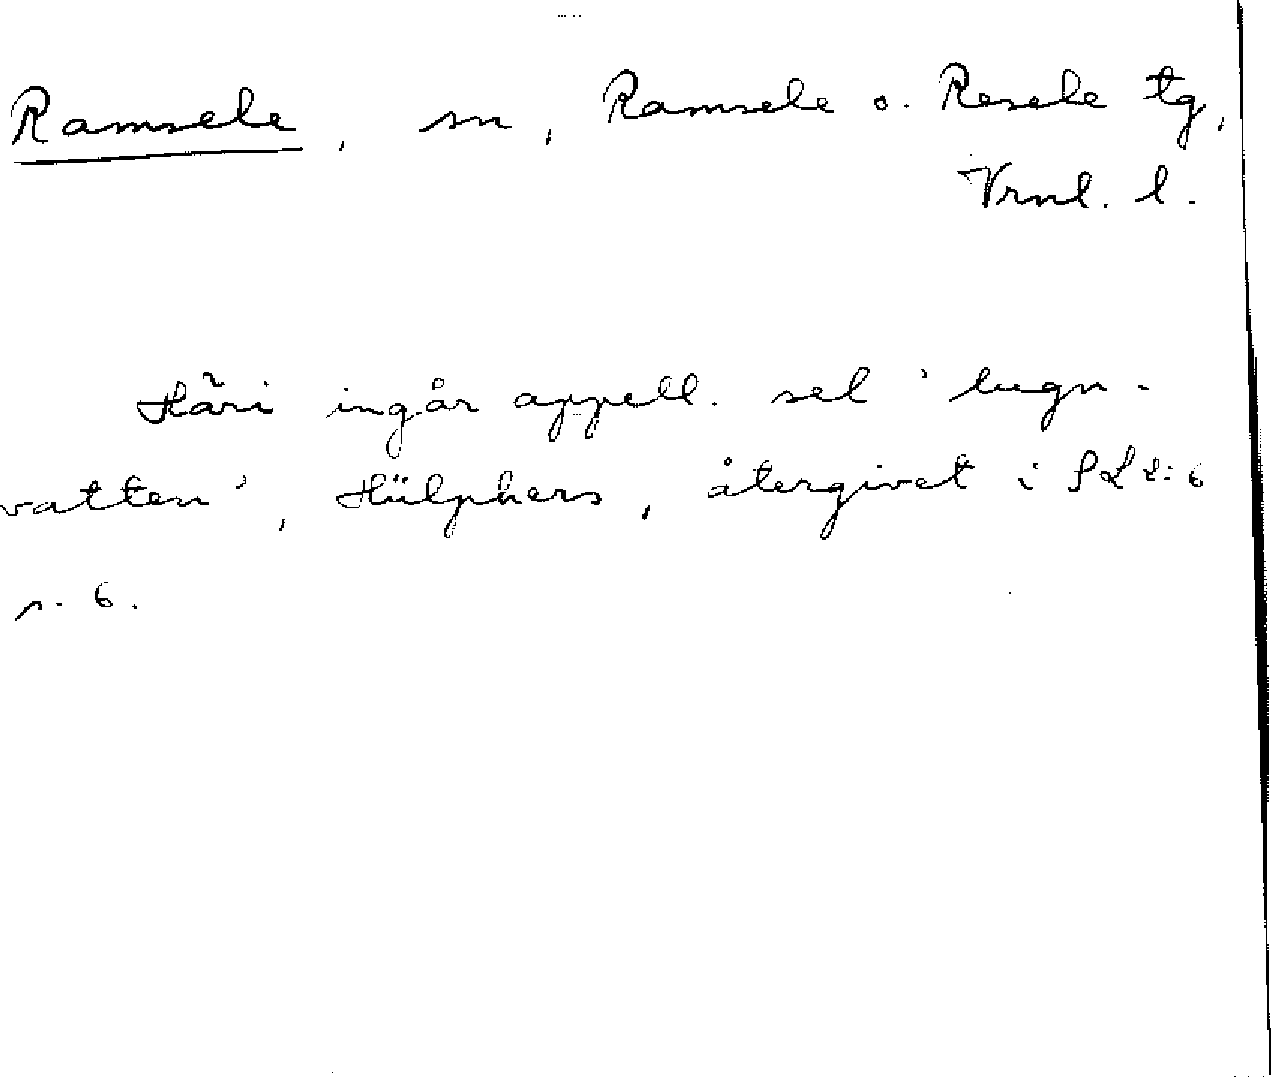 Ramsele, sn, Ramsele o. Resele tg,
Vrnl. l.
Häri ingår appell. sel 'lugn-
vatten', Hülphers, återgivet i
s. 6.